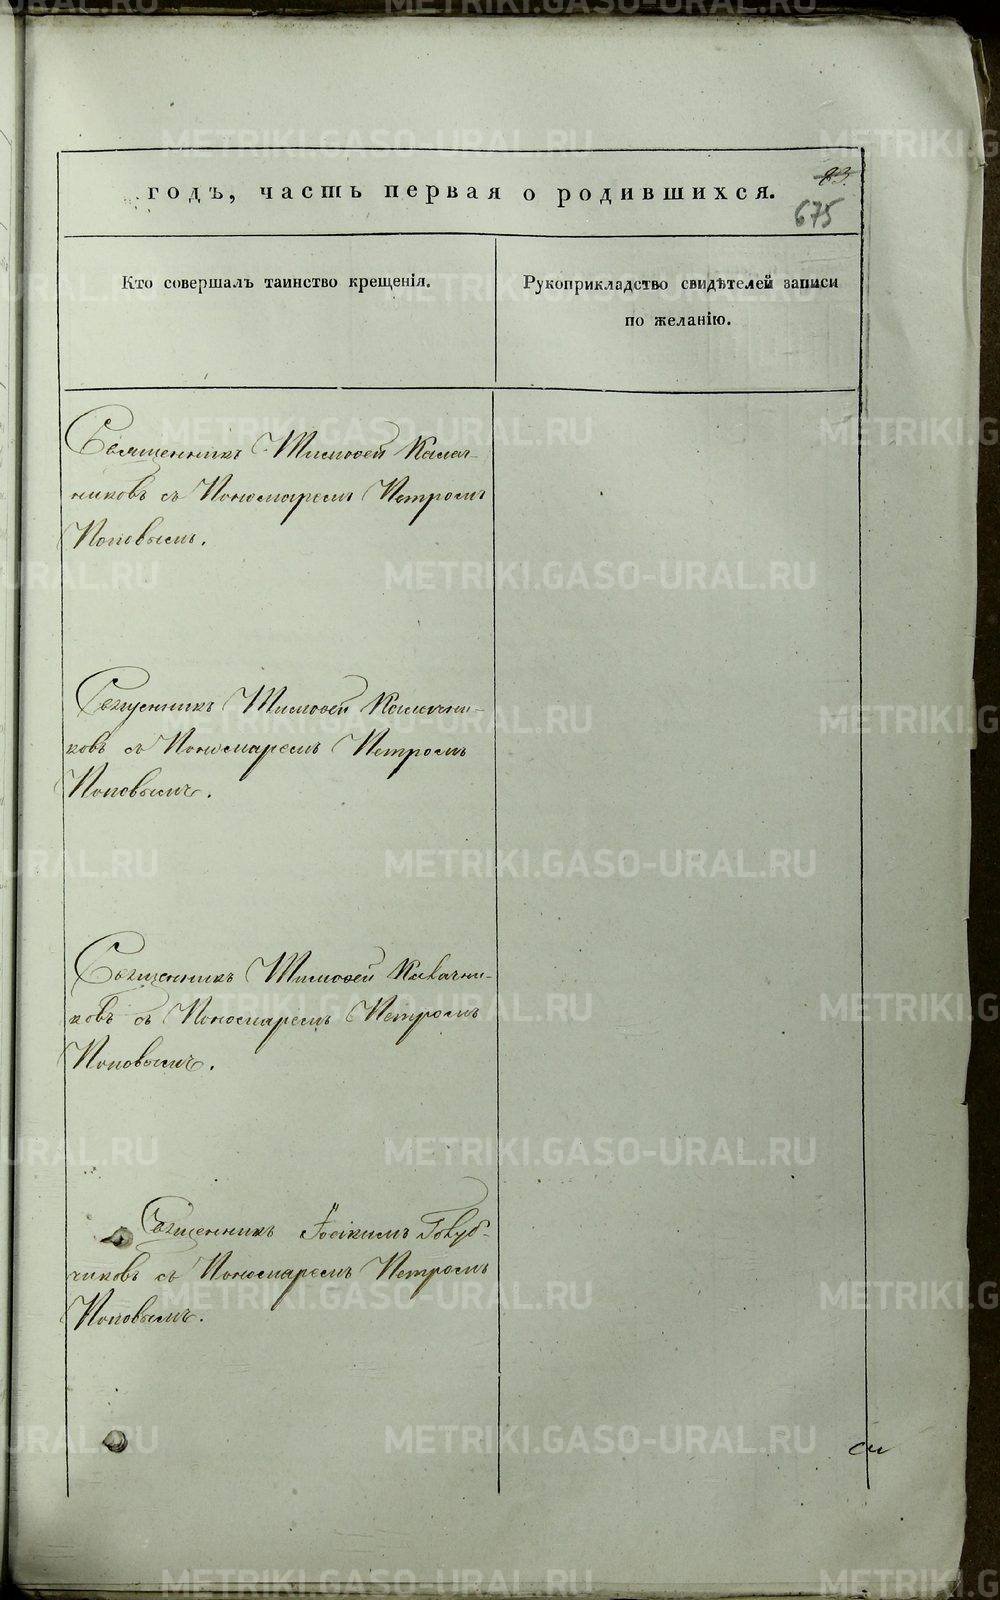 годъ, часть первая о родившихся.
83.
675
Кто совершалъ таинство крещенія.
Рукоприкладство свидѣтелей записи
по желанію.
Священникъ Тимоѳей Калач-
никовъ съ Пономаремъ Петромъ
Поповымъ.
Священникъ Тимоѳей Калачни-
ковъ съ Пономаремъ Петромъ
Поповымъ.
Священникъ Тимоѳей Калачни-
ковъ съ Пономаремъ Петромъ
Поповымъ.
Священникъ Іоакимъ Голуб-
чиковъ съ Пономаремъ Петромъ
Поповымъ.
METRIKI.GASO-URAL.RU